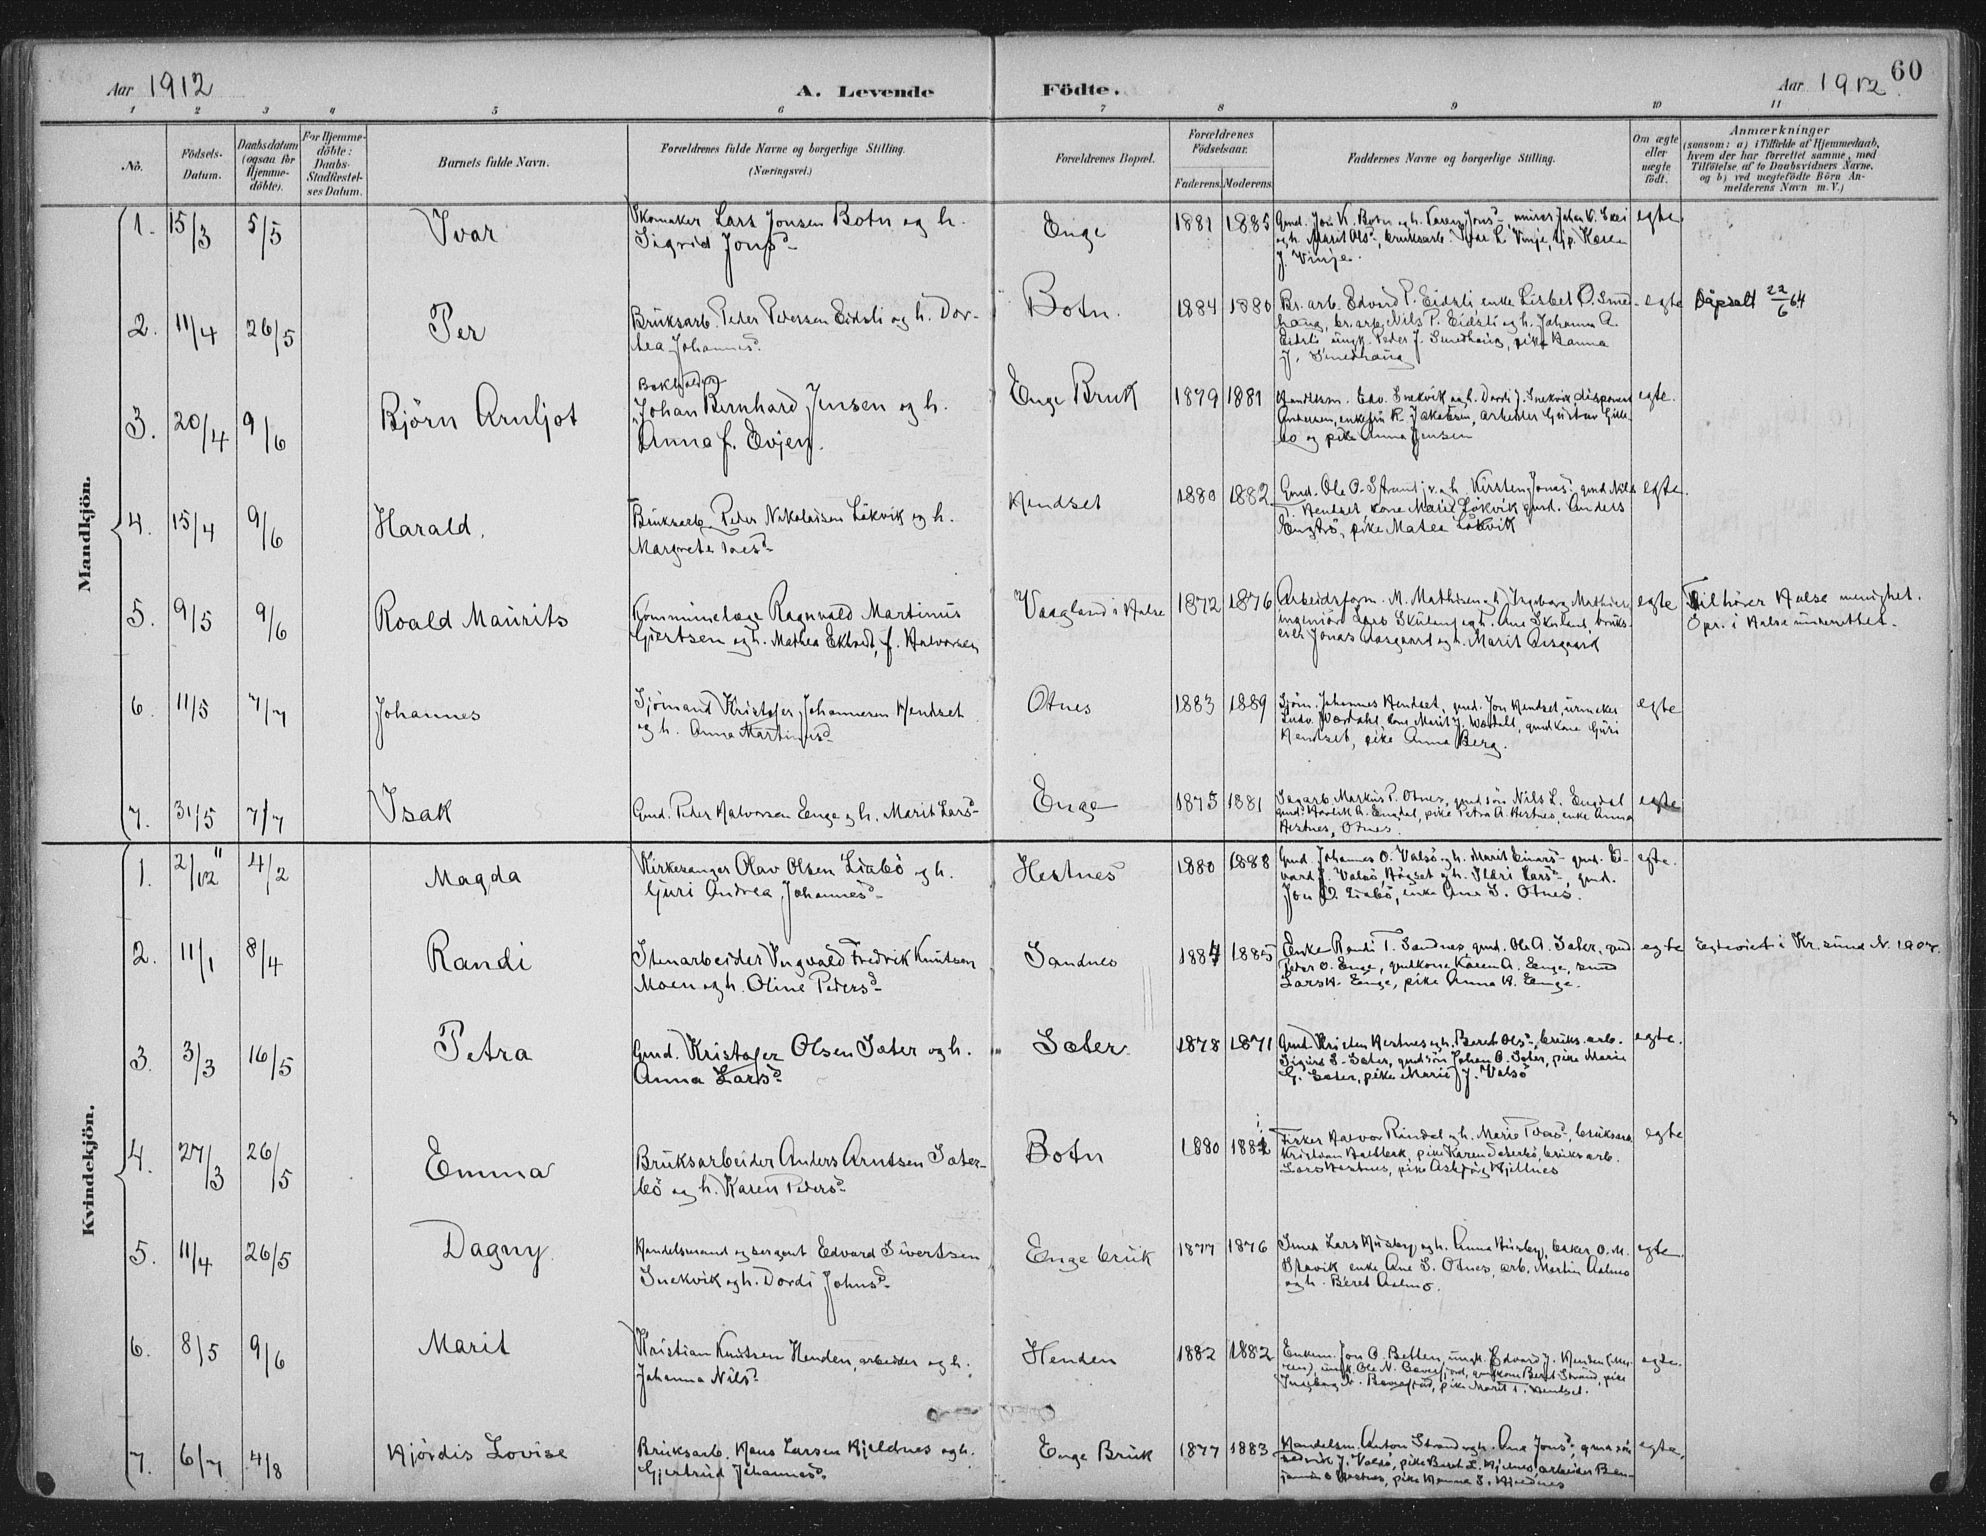 Aar 1912
A. Levende
Födte.
Aar 1912
60
1 2 3 4 5 6 7 8 9 10 11
No.
Födsels-Datum.
Daabsdatum (ogsaa for Hjemme-döbte).
For Hjemme-döbte: Daabs-Stadfæstel-ses Datum.
Barnets fulde Navn.
Forældrenes fulde Navne og borgerlige Stilling.
(Næringsvei.)
Forældrenes Bopæl.
Forældrenes Födselsaar.
Faderens. Moderens.
Faddernes Navne og borgerlige Stilling.
Om ægte eller uægte födt.
Anmærkninger
(saasom: a) i Tilfælde af Hjemmedaab,
hvem der har forrettet samme, med
Tilföielse af to Daabsvidners Navne,
og b) ved uægtefödte Börn An-
melderens Navn m. V.)
Mandkjön.
1. 15/3 5/5 Ivar
Skomaker Lars Jonsen Botn og h.
Sigrid Jonsd.
Enge 1881 1885
Gmd. Jon K. Botn og h. Karen Jonsd.
og h. Marit Olsd., bruksarb. Ivar L. Vinje, Karen
J. Vinje.
egte
2. 11/4 26/5 Per
Bruksarb. Peder Pedersen Eidsli og h. Dor-
tea Johannesd.
Botn. 1884 1880
Br. arb. Edvard P. Eidsli enke Lisbet O. Smed-
haug, br. arb. Nils P. Eidsli og h. Johanna A.
Eidsli ungk. Peder J. Smedhaug, pike Hanna
J. Smedhaug
egte
Dåpsatt 22/6 64
3. 20/4 9/6 Björn Arnljot
Bokholder
Johan Bernhard Jensen og h.
Anna f. Evjen.
Enge Bruk 1879 1881
Handelsm. Edv. Snekvik og h. Dordi J. Snekvik disponent
Andersen, enkefru K. Jakobsen, arbeider Gustav Gule-
bo og pike Anna Jensen
egte.
4. 15/4 9/6 Harald.
Bruksarb. Peder Nikolaisen Lökvik og h.
Margrete
Hendset 1880 1882
Gmd. Ole O. Strand jr. og h. Kirsten Jonasd. gmd Nils
T. Hendset kone Marie Lökvik gmd. Anders
Engdö, pike Matea Lökvik
egte.
5. 9/5 9/6 Roald Maurits
Kommunelæge Ragnvald Martinus
Gjertsen og h. Mathea Ekholdt, f. Halvorsen
Vaagland i Halse 1872 1876
Arbeidsform. M. Mathisen og h. Ingeborg Mathisen
ingeniör Lars Skulund og h. Ane Skulund bruks-
eier Jonas Aasgaard og h. Marit Aasgaard
egte
Tilhörer Halse menighet.
Opr. i Halse underrettet.
6. 11/5 7/7 Johannes
Sjömand Kristofer Johannesen Hendset
og h. Anna Martinusd.
Otnes 1883 1889
Sjöm. Johannes Hendset, gmd. Jon Hendset, urmaker
Ludv. Wærdahl, kone Marit J. Wærdahl, gmdkone Guri
Hendset, pike Anna Berg.
egte
7. 31/5 7/7 Isak
Gmd. Peder Halvorsen Enge og h. Marit Larsd.
Enge 1875 1881
Sagarb. Markus P. Otnes, gmd sön Nils L. Engdal
gmd. Hartvik A. Engdal, pike Petra A. Hestnes, enke Anna
Hestnes, Otnes.
egte
Kvindekjön.
1. 2/12 11 4/2 Magda
Kirkesanger Olav Olsen Liabö og h.
Guri Andrea Johannesd.
Hestnes 1880 1888
Gmd. Johannes O. Valsö og h. Marit Einarsd. gmd. Ed-
vard J. Valsö, Högset og h. Ildri Larsd., gmd.
Jon O. Liabö, enke Ane S. Otnes.
egte.
2. 11/1 8/4 Randi
Stenarbeider Ingvald Fredrik Knutsen
Moen og h. Oline Pedersd.
Sandnes 1884 1885
Enke Randi T. Sandnes, gmd. Ole A. Sæter, gmd
Peder O. Enge, gmdkone Karen A. Enge, smed
Lars H. Enge, pike Anna H. Enge.
egte
Egteviet i Kr.sund N. 1907.
3. 3/3 16/5 Petra
Gmd. Kristofer Olsen Sæter og h.
Anna Larsd.
Sæter. 1878 1871
Gmd. Kristen Hestnes og h. Beret Olsd., bruks. arb.
Sigurd L. Sæter, gmdsön Johan O. Sæter, pike Marie
G. Sæter, pike Marie J. Valsö
egte.
4. 27/3 26/5 Emma
Bruksarbeider Anders Arntsen Sæter-
bö og h. Karen Pedersd.
Botn 1880 1882
Fisker Halvor Rindal og h. Marie bruksarb.
Kristian Halbak, pike Karen Sæterbö, bruksarb.
Lars Hestnes, pike Asbjörg Kjellnes
egte
5. 11/4 26/5 Dagny
Handelsmand og sergent Edvard Sivertsen
Snekvik og h. Dordi Johnsd.
Enge bruk 1877 1876
Smed Lars Husby og h. Anna Husby, baker O. M.
Stavik enke Ane S. Otnes, arb. Martin Aalmo
og h. Beret Aalmo.
egte.
6. 8/5 9/6 Marit
Kristian Knutsen Henden, arbeider og h.
Johanna Nilsd.
Henden 1882 1882
Enkem. Jon O. Betten, ungk. Edvard J. Henden
ungk. Ole N. Bævefjord, gmdkone Beret Strand, pike
Ingeborg N. Bævefjord, pike Marit T. Hendset.
egte.
7. 6/7 4/8 Hjördis Lovise
Bruksarb. Hans Larsen Hjeldnes og h.
Gjertrud Johannesd.
Enge Bruk 1877 1883
Handelsm. Anton Strand og h. Ana Jonsd., gmd sön
Fredrik J. Valsö, pike Beret L. Hjelnes, arbeider Ben-
jamin O Hestnes, pike Hanna L. Hjeldnes
egte.